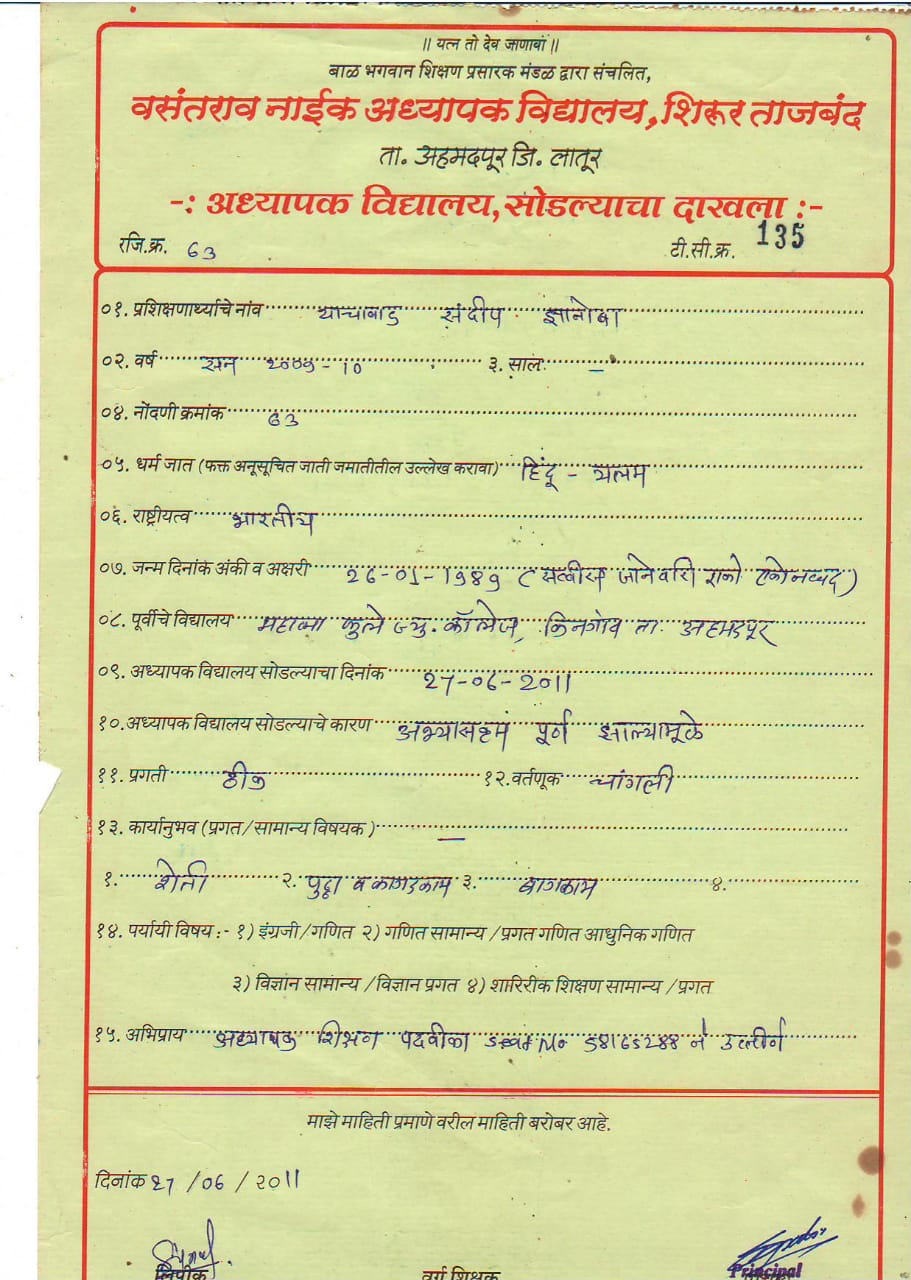 ॥ यत्न तो देव जाणावा ॥
बाळ भगवान शिक्षण प्रसारक मंडळ द्वारा संचलित,
वसंतराव नाईक अध्यापक विद्यालय, शिरूर ताजबंद
ता. अहमदपूर जि. लातूर
-: अध्यापक विद्यालय, सोडल्याचा दाखला :-
रजि.क्र. 63 टी.सी.क्र. 135
०१. प्रशिक्षणार्थ्याचे नांव संदीप ज्ञानोबा
०२. वर्ष सन २००९-१० ३. साल. –
०४. नोंदणी क्रमांक 63
०५. धर्म जात (फक्त अनूसूचित जाती जमातीतील उल्लेख करावा) हिंदू -
०६. राष्ट्रीयत्व भारतीय
०७. जन्म दिनांक अंकी व अक्षरी 26-01-1989 ( सव्वीस जानेवारी एकोणनव्वद )
०८. पूर्वीचे विद्यालय महात्मा फुले ज्यु. कॉलेज, किनगाव ता. अहमदपूर
०९. अध्यापक विद्यालय सोडल्याचा दिनांक 27-06-2011
१०. अध्यापक विद्यालय सोडल्याचे कारण अभ्यासक्रम पूर्ण झाल्यामूळे
११. प्रगती ठीक १२. वर्तणूक चांगली
१३. कार्यानुभव (प्रगत/सामान्य विषयक) —
१. शेती २. पुठ्ठा व कागदकाम ३. बागकाम ४.
१४. पर्यायी विषय :- १) इंग्रजी/गणित २) गणित सामान्य /प्रगत गणित आधुनिक गणित
३) विज्ञान सामान्य /विज्ञान प्रगत ४) शारिरीक शिक्षण सामान्य /प्रगत
१५. अभिप्राय अध्यापक शिक्षण पदवीका No ने उत्तीर्ण
माझे माहिती प्रमाणे वरील माहिती बरोबर आहे.
दिनांक 27 /06 / २०11
लिपीक वर्ग शिक्षक Principal